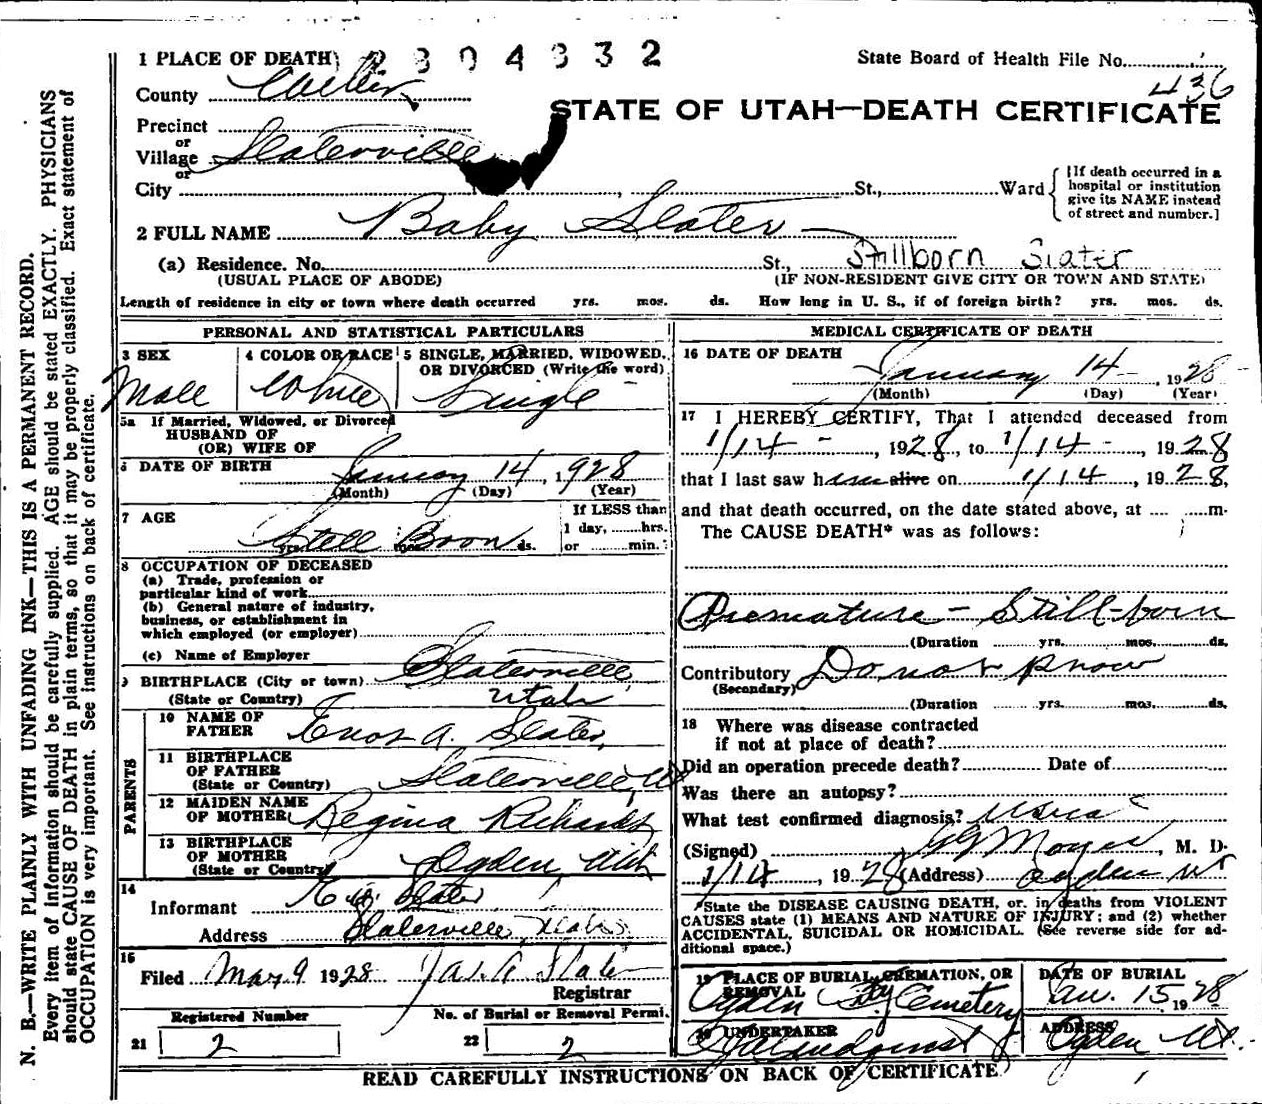 N. B.—WRITE PLAINLY WITH UNFADING INK—THIS IS A PERMANENT RECORD.
Every item of information should be carefully supplied. AGE should be stated EXACTLY. PHYSICIANS
should state CAUSE OF DEATH in plain terms, so that it may be properly classified. Exact statement of
OCCUPATION is very important. See instructions on back of certificate.
1 PLACE OF DEATH 2304332 State Board of Health File No.
County Weber 436
STATE OF UTAH—DEATH CERTIFICATE
Precinct
or
Village Slaterville
or
City St., Ward
[If death occurred in a
hospital or institution
give its NAME instead
of street and number.]
2 FULL NAME Baby Slater
(a) Residence. No. St., Stillborn Slater
(USUAL PLACE OF ABODE) (IF NON-RESIDENT GIVE CITY OR TOWN AND STATE)
Length of residence in city or town where death occurred yrs. mos. ds. How long in U. S., if of foreign birth? yrs. mos. ds.
PERSONAL AND STATISTICAL PARTICULARS
3 SEX 4 COLOR OR RACE 5 SINGLE, MARRIED, WIDOWED,
OR DIVORCED (Write the word)
Male White Single
5a If Married, Widowed, or Divorced
HUSBAND OF
(OR) WIFE OF
6 DATE OF BIRTH January 14, 1928
(Month) (Day) (Year)
7 AGE If LESS than
1 day, hrs.
Still Born yrs. mos. ds. or min.
8 OCCUPATION OF DECEASED
(a) Trade, profession or
particular kind of work
(b) General nature of industry,
business, or establishment in
which employed (or employer)
(c) Name of Employer
9 BIRTHPLACE (City or town) Slaterville
(State or Country) Utah
PARENTS
10 NAME OF
FATHER Enos A. Slater
11 BIRTHPLACE
OF FATHER
(State or Country) Slaterville, Ut
12 MAIDEN NAME
OF MOTHER Regina Richards
13 BIRTHPLACE
OF MOTHER
(State or Country) Ogden, Utah
14
Informant Slater
Address Slaterville, Utah
15
Filed Mar. 9 1928 Jas. A. Slater
Registrar
Registered Number No. of Burial or Removal Permit
21 2 22 2
MEDICAL CERTIFICATE OF DEATH
16 DATE OF DEATH
January 14, 1928
(Month) (Day) (Year)
17 I HEREBY CERTIFY, That I attended deceased from
1/14 -, 1928, to 1/14 -, 1928
that I last saw him alive on 1/14, 1928,
and that death occurred, on the date stated above, at m.
The CAUSE DEATH* was as follows:
Premature - Still-born
(Duration yrs. mos. ds.
Contributory Do not know
(Secondary)
(Duration yrs. mos. ds.
18 Where was disease contracted
if not at place of death?
Did an operation precede death? Date of
Was there an autopsy?
What test confirmed diagnosis?
(Signed) , M. D.
1/14, 1928 (Address) Ogden Ut
*State the DISEASE CAUSING DEATH, or, in deaths from VIOLENT
CAUSES state (1) MEANS AND NATURE OF INJURY; and (2) whether
ACCIDENTAL, SUICIDAL OR HOMICIDAL. (See reverse side for ad-
ditional space.)
19 PLACE OF BURIAL, CREMATION, OR
REMOVAL
Ogden City Cemetery
DATE OF BURIAL
Jan. 15, 1928
20 UNDERTAKER
ADDRESS
Ogden Ut.
READ CAREFULLY INSTRUCTIONS ON BACK OF CERTIFICATE